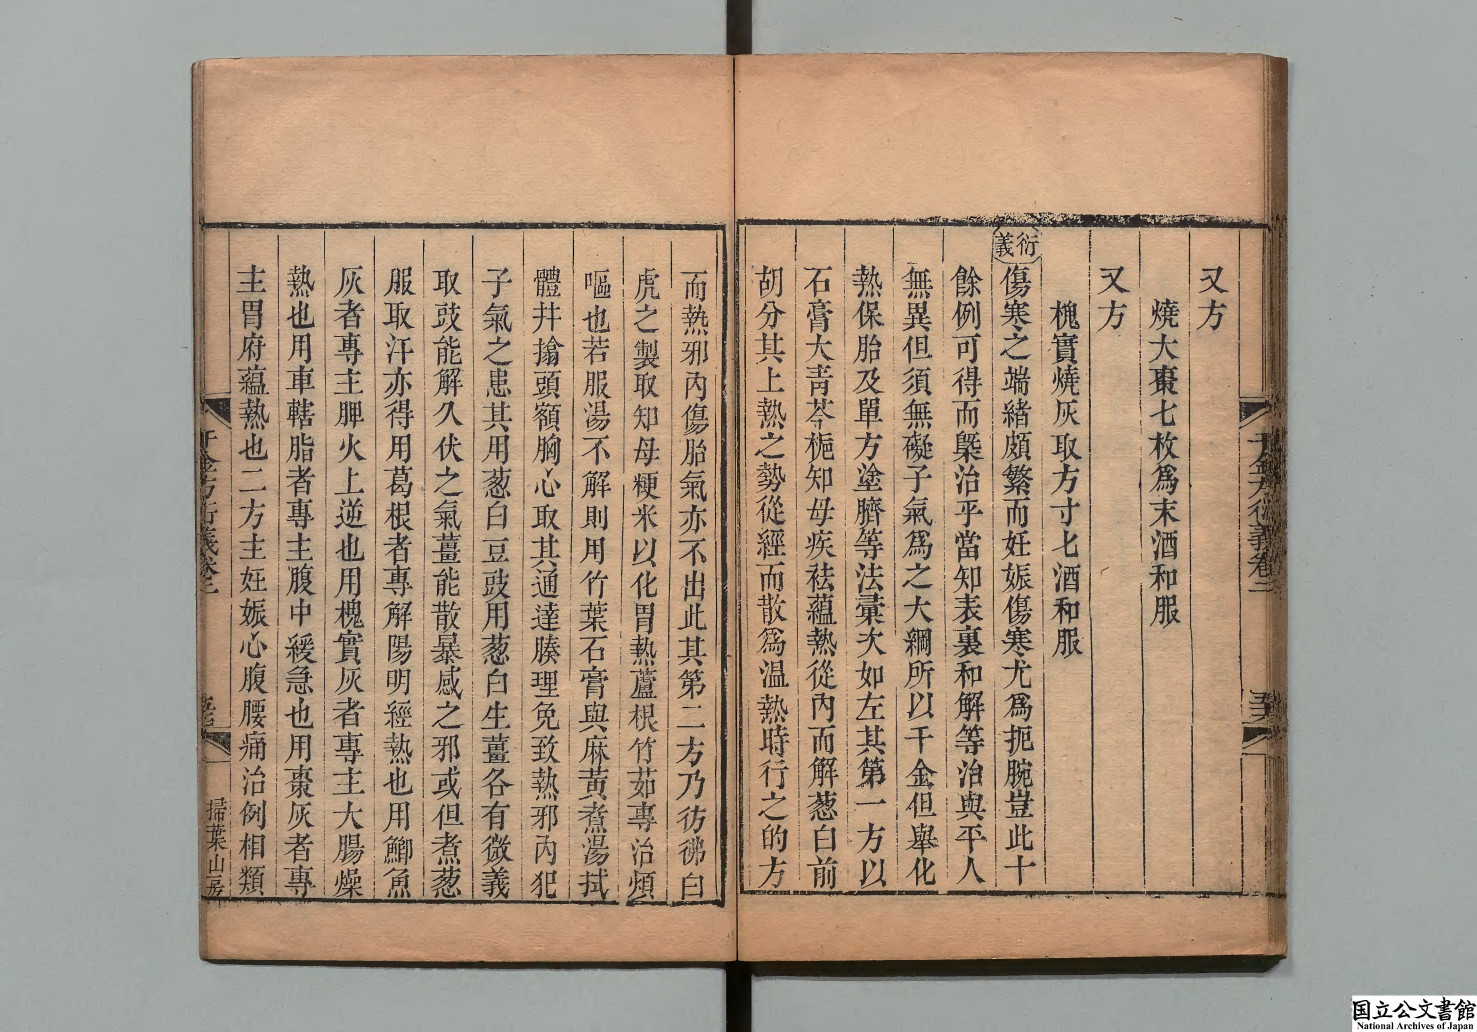 又方
燒大棗七枚爲末酒和服
又方
槐實燒灰取方寸匕酒和服
衍義
傷寒之端緒頗繁而妊娠傷寒尤爲扼腕豈此十
餘例可得而槩治乎當知表裏和解等治與平人
無異但須無礙子氣爲之大綱所以千金但舉化
熱保胎及單方塗臍等法彙次如左其第一方以
石膏大青芩梔知母疾袪蘊熱從內而解葱白前
胡分其上熱之勢從經而散爲温熱時行之的方
而熱邪內傷胎氣亦不出此其第二方乃彷彿白
虎之製取知母粳米以化胃熱蘆根竹茹專治煩
嘔也若服湯不解則用竹葉石膏與麻黃煮湯拭
體幷搶頭額胸心取其通達腠理免致熱邪內犯
子氣之患其用葱白豆豉用葱白生薑各有微義
取豉能解久伏之氣薑能散暴感之邪或但煮葱
服取汗亦得用葛根者專解陽明經熱也用鯽魚
灰者專主脾火上逆也用槐實灰者專主大腸燥
熱也用車轄脂者專主腹中緩急也用棗灰者專
主胃府蘊熱也二方主妊娠心腹腰痛治例相類
千金方衍義卷二
掃葉山房
国立公文書館
National Archives of Japan